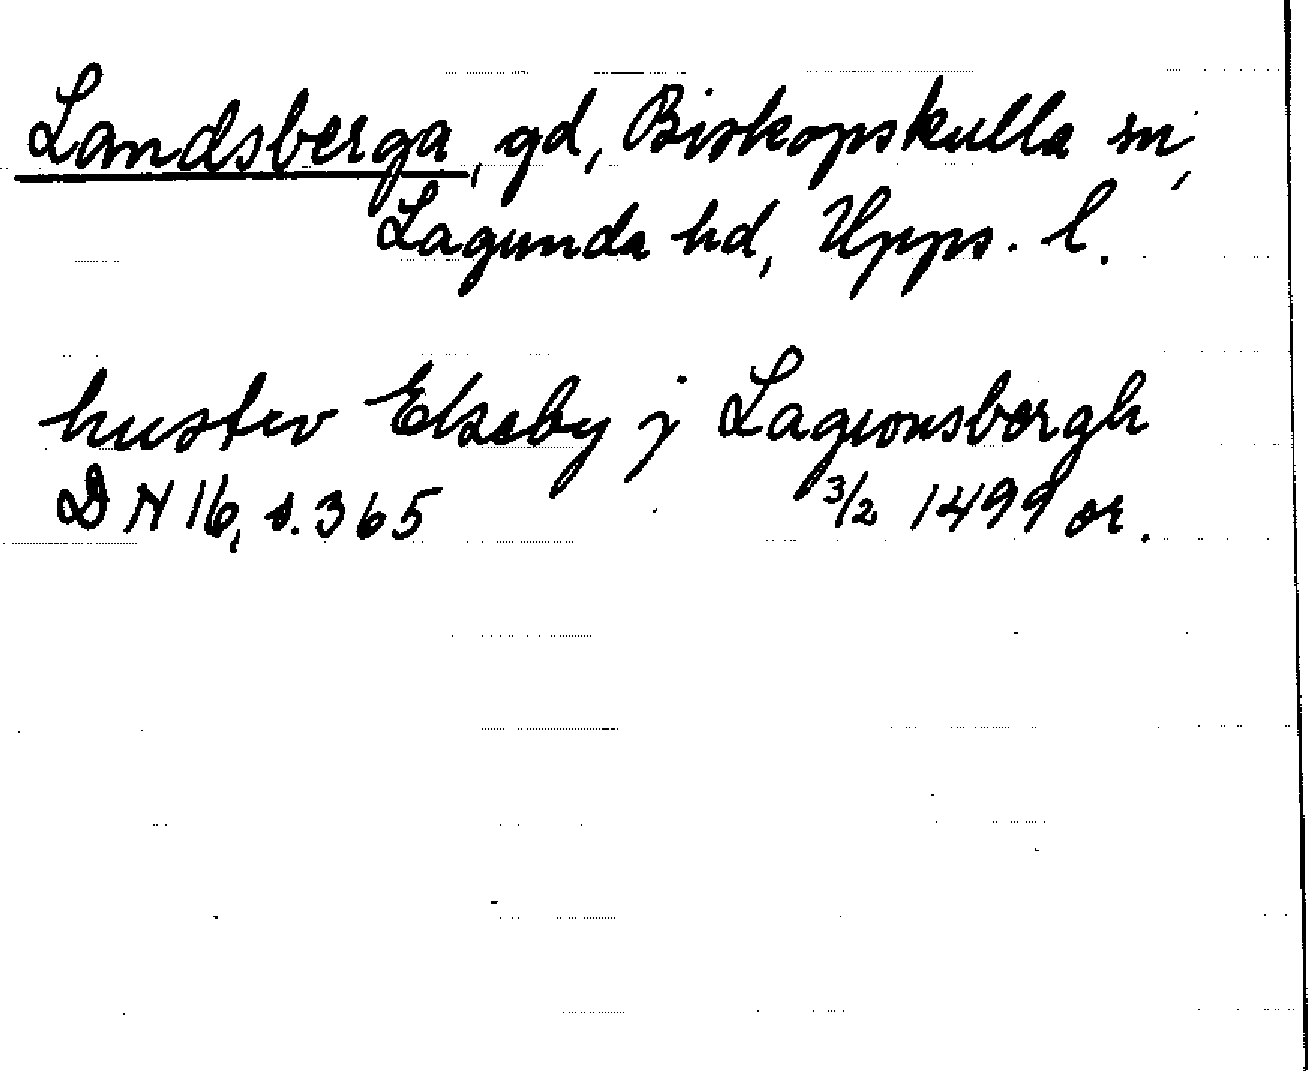 Landsberga, gd, Biskopskulla sn,
Lagunda hd, Upps. l.
hustrv Elzeby j Lagwnsbergh
DN 16, s. 365 3/2 1499 or.